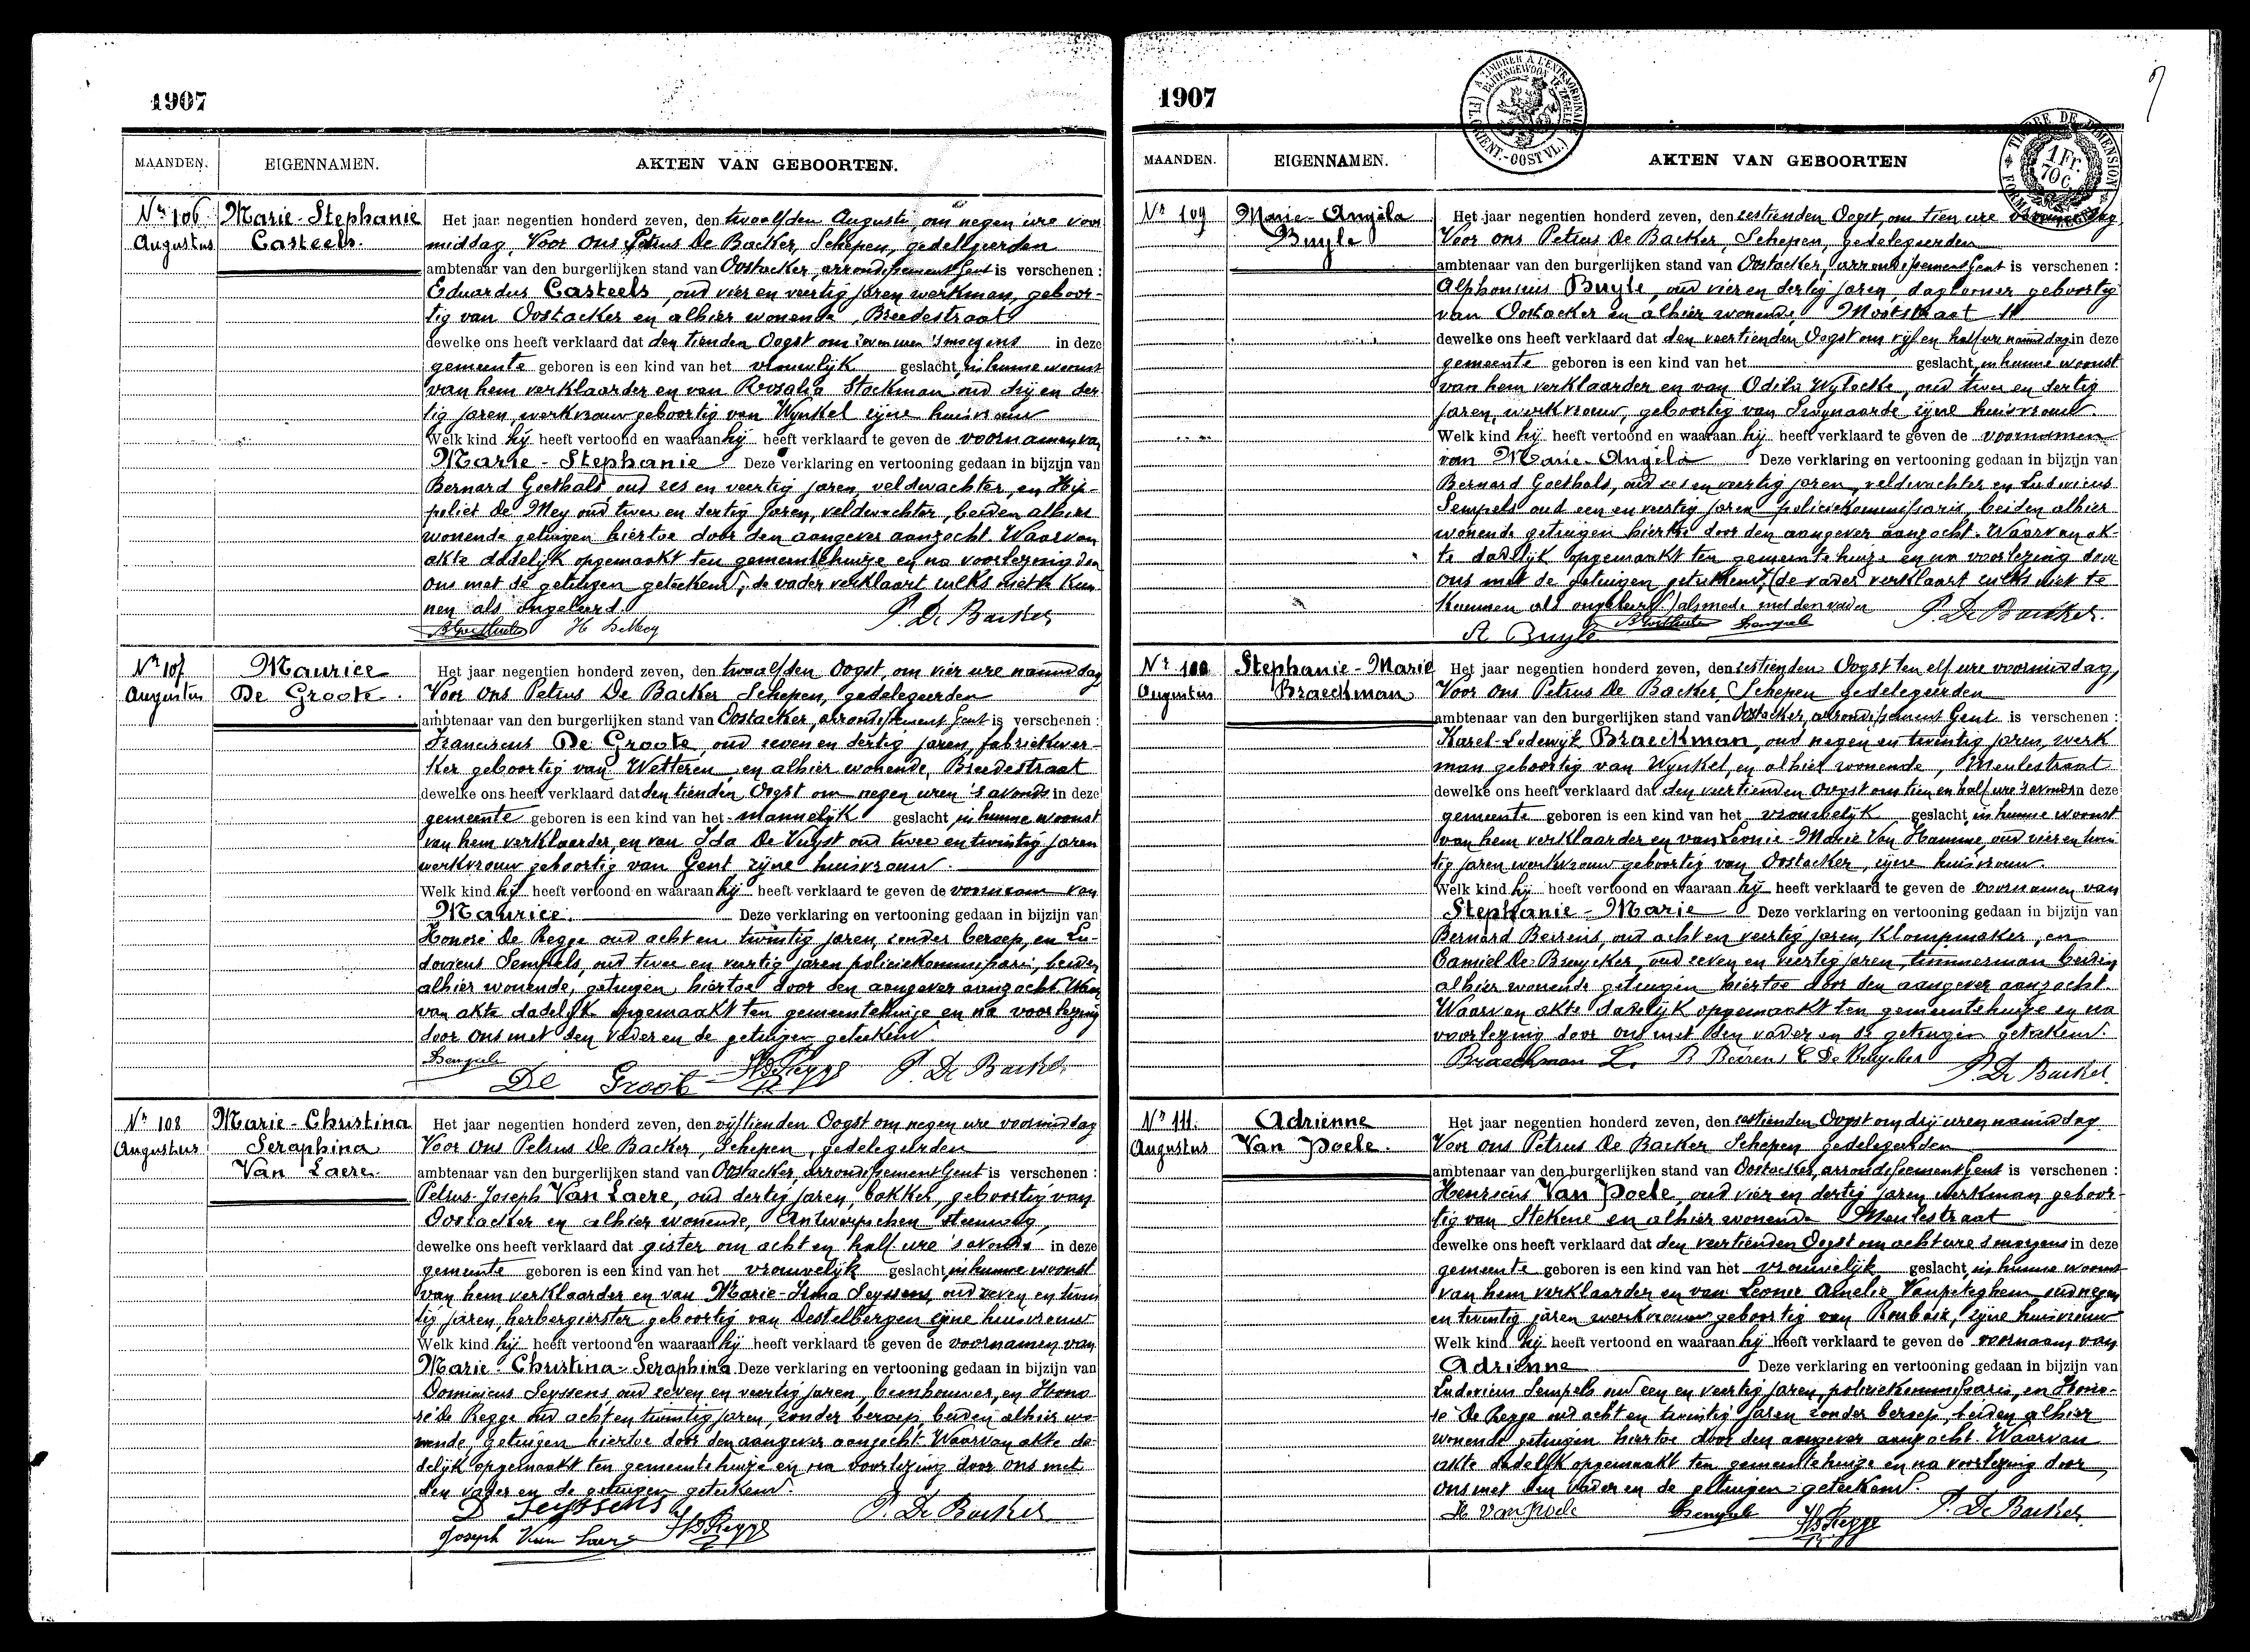 1907
MAANDEN. EIGENNAMEN. AKTEN VAN GEBOORTEN.
Nr 106 Marie-Stephanie
Augustus Casteels.
Het jaar negentien honderd zeven, den twaalfden Augusti om negen ure voor
middag, Voor ons Petrus De Backer, Schepen, gedelegeerden
ambtenaar van den burgerlijken stand van Oostacker, arrondissement Gent is verschenen :
Eduardus Casteels, oud vier en veertig jaren werkman, geboor-
tig van Oostacker en alhier wonende, Breedestraat
dewelke ons heeft verklaard dat den tienden Oogst om zeven uren 's morgens in deze
gemeente geboren is een kind van het vrouwelijk geslacht, in hunne woonst
van hem verklaarder en van Rosalia Stockman oud drij en der
tig jaren, werkvrouw geboortig van Wynkel zijne huisvrouw
Welk kind hij heeft vertoond en waaraan hij heeft verklaard te geven de voornamen van
Marie-Stephanie Deze verklaring en vertooning gedaan in bijzijn van
Bernard Goethals, oud zes en veertig jaren, veldwachter, en Hip-
poliet De Mey oud twee en dertig jaren, veldwachter, beiden alhier
wonende getuigen hiertoe door den aangever aanzocht. Waarvan
akte dadelijk opgemaakt ten gemeentehuize en na voorlezing door
ons met de getuigen geteekend, de vader verklaart zulks niet te kun
nen als ongeleerd.
B Goethals H DeMey P. De Backer
Nr 107 Maurice
Augustus De Groote.
Het jaar negentien honderd zeven, den twaalfden Oogst, om vier ure namiddag
Voor ons Petrus De Backer Schepen, gedelegeerden
ambtenaar van den burgerlijken stand van Oostacker, arrondissement Gent is verschenen :
Franciscus De Groote, oud zeven en dertig jaren, fabriekwer-
ker geboortig van Wetteren en alhier wonende, Breedestraat
dewelke ons heeft verklaard dat den tienden Oogst om negen uren 's avonds in deze
gemeente geboren is een kind van het mannelijk geslacht in hunne woonst
van hem verklaarder, en van Ida De Vuyst oud twee en twintig jaren
werkvrouw geboortig van Gent zijne huisvrouw.
Welk kind hij heeft vertoond en waaraan hij heeft verklaard te geven de voornaam van
Maurice. Deze verklaring en vertooning gedaan in bijzijn van
Honoré De Regge oud acht en twintig jaren, zonder beroep, en Lu-
dovicus Sempels, oud twee en veertig jaren policiekommissaris, beiden
alhier wonende, getuigen hiertoe door den aangever aanzocht. Waar
van akte dadelijk opgemaakt ten gemeentehuize en na voorlezing
door ons met den vader en de getuigen geteekend
Sempels De Groote H De Regge P. De Backer
Nr 108 Marie-Christina
Augustus Seraphina
Van Laere.
Het jaar negentien honderd zeven, den vijftienden Oogst om negen ure voormiddag
Voor ons Petrus De Backer, Schepen, gedelegeerden
ambtenaar van den burgerlijken stand van Oostacker, arrondissement Gent is verschenen :
Petrus-Joseph Van Laere, oud dertig jaren, bakker, geboortig van
Oostacker en alhier wonende, Antwerpschen steenweg,
dewelke ons heeft verklaard dat gister om acht en half ure 's avonds in deze
gemeente geboren is een kind van het vrouwelijk geslacht, in hunne woonst
van hem verklaarder en van Marie-Irma Seyssens, oud zeven en twin
tig jaren, herbergierster geboortig van Destelbergen zijne huisvrouw
Welk kind hij heeft vertoond en waaraan hij heeft verklaard te geven de voornamen van
Marie-Christina-Seraphina Deze verklaring en vertooning gedaan in bijzijn van
Dominicus Seyssens, oud zeven en veertig jaren, beenhouwer, en Hono
ré De Regge oud acht en twintig jaren, zonder beroep, beiden alhier wo
nende, getuigen hiertoe door den aangever aanzocht. Waarvan akte da-
delijk opgemaakt ten gemeentehuize en na voorlezing door ons met
den vader en de getuigen geteekend.
D Seyssens P. De Backer
Joseph Van Laere H De Regge
1907
MAANDEN. EIGENNAMEN. AKTEN VAN GEBOORTEN
TIMBRE DE DIMENSION
1 Fr. 70 C.
Nr 109 Marie-Angèla
Buyle
Het jaar negentien honderd zeven, den zestienden Oogst, om tien ure voormiddag
Voor ons Petrus De Backer, Schepen, gedelegeerden
ambtenaar van den burgerlijken stand van Oostacker, arrondissement Gent is verschenen :
Alphonsius Buyle, oud vier en dertig jaren, daglooner geboortig
van Oostacker en alhier wonende Mootstraat 11
dewelke ons heeft verklaard dat den veertienden Oogst om vijf en half ure namiddag in deze
gemeente geboren is een kind van het geslacht, in hunne woonst
van hem verklaarder en van Odila Wylocke, oud twee en dertig
jaren, werkvrouw, geboortig van Swynaarde zijne huisvrouw.
Welk kind hij heeft vertoond en waaraan hij heeft verklaard te geven de voornamen
van Marie-Angèla Deze verklaring en vertooning gedaan in bijzijn van
Bernard Goethals, oud zes en veertig jaren, veldwachter en Ludovicus
Sempels oud een en veertig jaren policiekommissaris, beiden alhier
wonende getuigen hiertoe door den aangever aanzocht. Waarvan ak-
te dadelijk opgemaakt ten gemeentehuize en na voorlezing door
ons met de getuigen geteekend, (de vader verklaart zulks niet te
kunnen als ongeleerd.) alsmede met den vader P. De Backer.
A Buyle B Goethals Sempels
Nr 110 Stephanie-Marie
Augustus Braeckman
Het jaar negentien honderd zeven, den zestienden Oogst ten elf ure voormiddag,
Voor ons Petrus De Backer, Schepen gedelegeerden
ambtenaar van den burgerlijken stand van Oostacker, arrondissement Gent is verschenen :
Karel-Lodewijk Braeckman, oud negen en twintig jaren, werk
man geboortig van Wynkel, en alhier wonende, Meulestraat
dewelke ons heeft verklaard dat den veertienden Oogst om tien en half ure 's avonds in deze
gemeente geboren is een kind van het vrouwelijk geslacht, in hunne woonst
van hem verklaarder en van Leonie-Marie Van Hamme, oud vier en twin
tig jaren werkvrouw geboortig van Oostacker, zijne huisvrouw.
Welk kind hij heeft vertoond en waaraan hij heeft verklaard te geven de voornamen van
Stephanie-Marie Deze verklaring en vertooning gedaan in bijzijn van
Bernard Beirens, oud acht en veertig jaren, klompmaker, en
Camiel De Bruycker, oud zeven en veertig jaren, timmerman beiden
alhier wonende getuigen hiertoe door den aangever aanzocht.
Waarvan akte dadelijk opgemaakt ten gemeentehuize en na
voorlezing door ons met den vader en de getuigen geteekend.
Braeckman L. B Beirens C De Bruycker P. De Backer.
Nr 111. Adrienne
Augustus Van Poele.
Het jaar negentien honderd zeven, den zestienden Oogst om drij uren namiddag
Voor ons Petrus De Backer Schepen gedelegeerden
ambtenaar van den burgerlijken stand van Oostacker, arrondissement Gent is verschenen :
Henricus Van Poele, oud vier en dertig jaren werkman geboor-
tig van Stekene en alhier wonende Meulestraat
dewelke ons heeft verklaard dat den veertienden Oogst om acht ure 's morgens in deze
gemeente geboren is een kind van het vrouwelijk geslacht, in hunne woonst
van hem verklaarder en van Leonie Amelie Vanpiteghem oud negen
en twintig jaren werkvrouw geboortig van Roubaix, zijne huisvrouw
Welk kind hij heeft vertoond en waaraan hij heeft verklaard te geven de voornaam van
Adrienne Deze verklaring en vertooning gedaan in bijzijn van
Ludovicus Sempels oud een en veertig jaren, policiekommissaris, en Hono-
ré De Regge oud acht en twintig jaren zonder beroep, beiden alhier
wonende getuigen hiertoe door den aangever aanzocht. Waarvan
akte dadelijk opgemaakt ten gemeentehuize en na voorlezing door
ons met den vader en de getuigen geteekend.
H Van Poele Sempels H De Regge P. De Backer